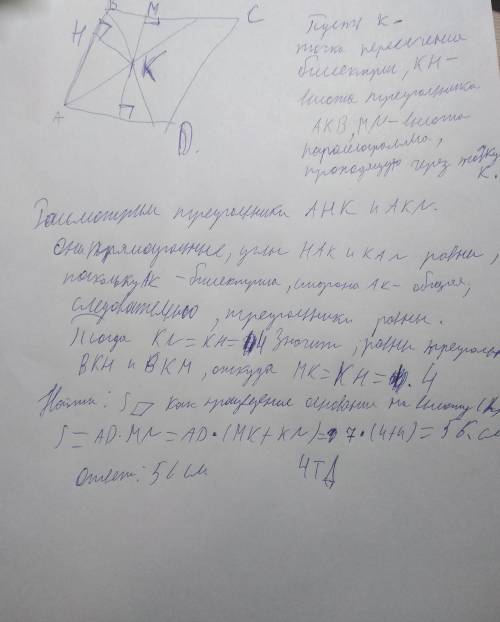 B M C
H
K
A
D.
Пусть K-
точка пересечения
биссектрис, KH-
высота треугольника
AKB, MN-высота
параллелограмма,
проходящую через точку
K.
Рассмотрим треугольники AHK и AKN.
Они прямоугольные, углы HAK и KAN равны,
поскольку AK - биссектриса, сторона AK- общая,
следовательно, треугольники равны.
Тогда KN = KH = 4 Значит, равны треуголь
BKH и BKM, откуда MK = KH = 4
Найти: S как произведение основания на высоту
S = AD·MN = AD·(MK+KN) = 7·(4+4) = 56 см
Ответ: 56 см
ЧТД